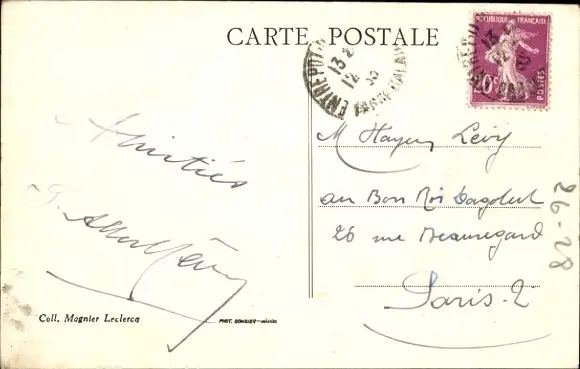 CARTE POSTALE
RÉPUBLIQUE FRANÇAISE
POSTES
ENTREPOT
13
12
35
Amitiés
M Hayem Lévy
au Bon Roi Dagobert
26 rue Beauregard
Paris-2
26-28
Coll. Magnier Leclercq
PHOT. COMBIER-MÂCON